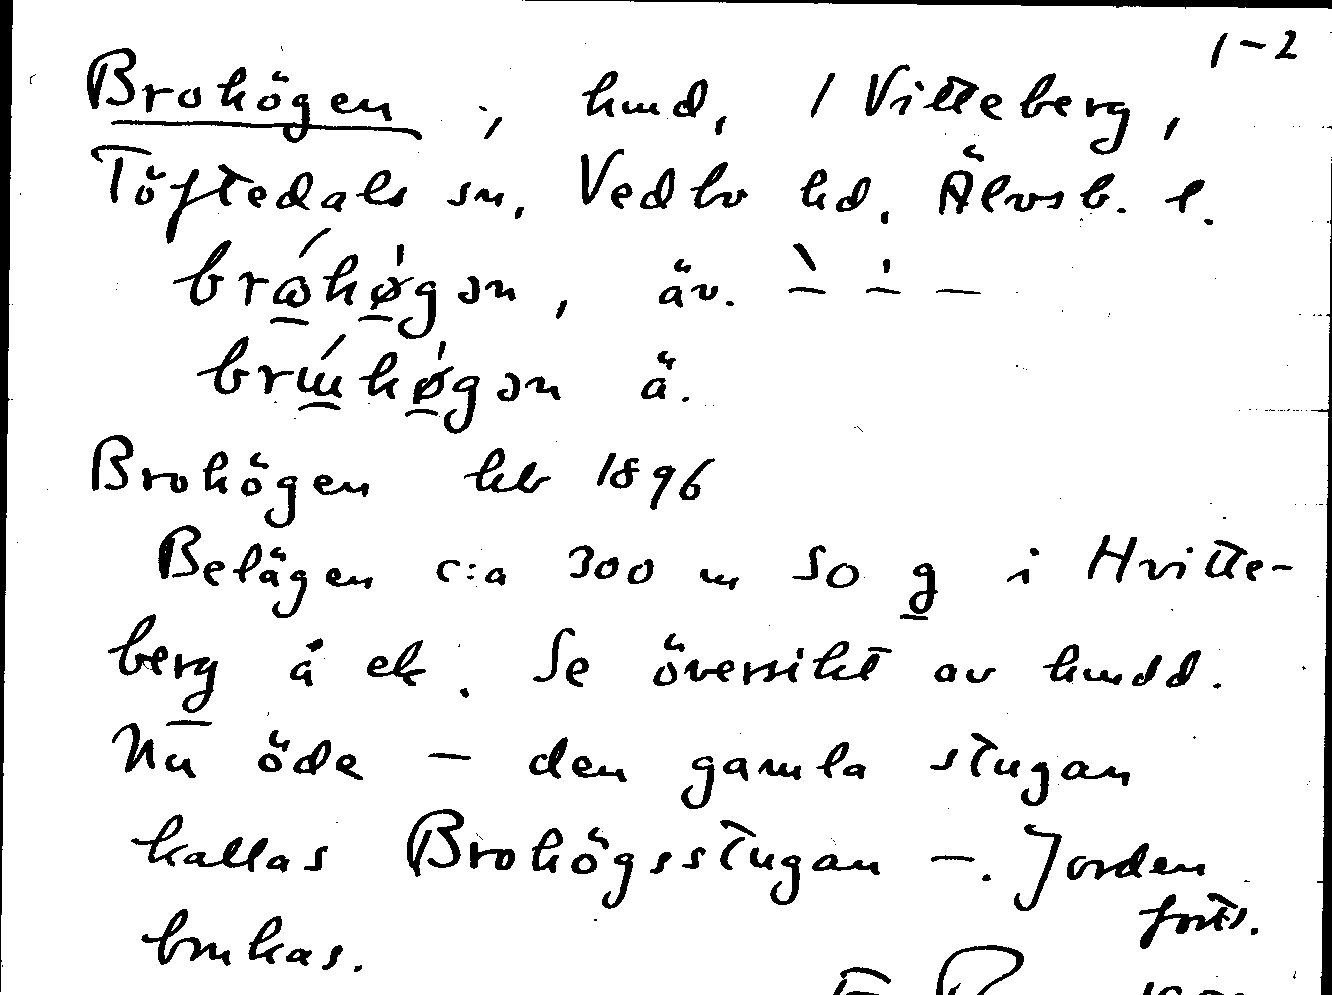 1-2
Brohögen ;, hmd, i Vitteberg,
Töftedals sn, Vedbo hd, Älvsb. l.
brώhø̍gən, äv. – – –
brɯ́hø̍gən ä.
Brohögen hb 1896
Belägen c:a 300 m SO g i Hvitte-
berg å ek. Se översikt av hmdd.
Nu öde — den gamla stugan
kallas Brohögsstugan —. Jorden
brukas. forts.